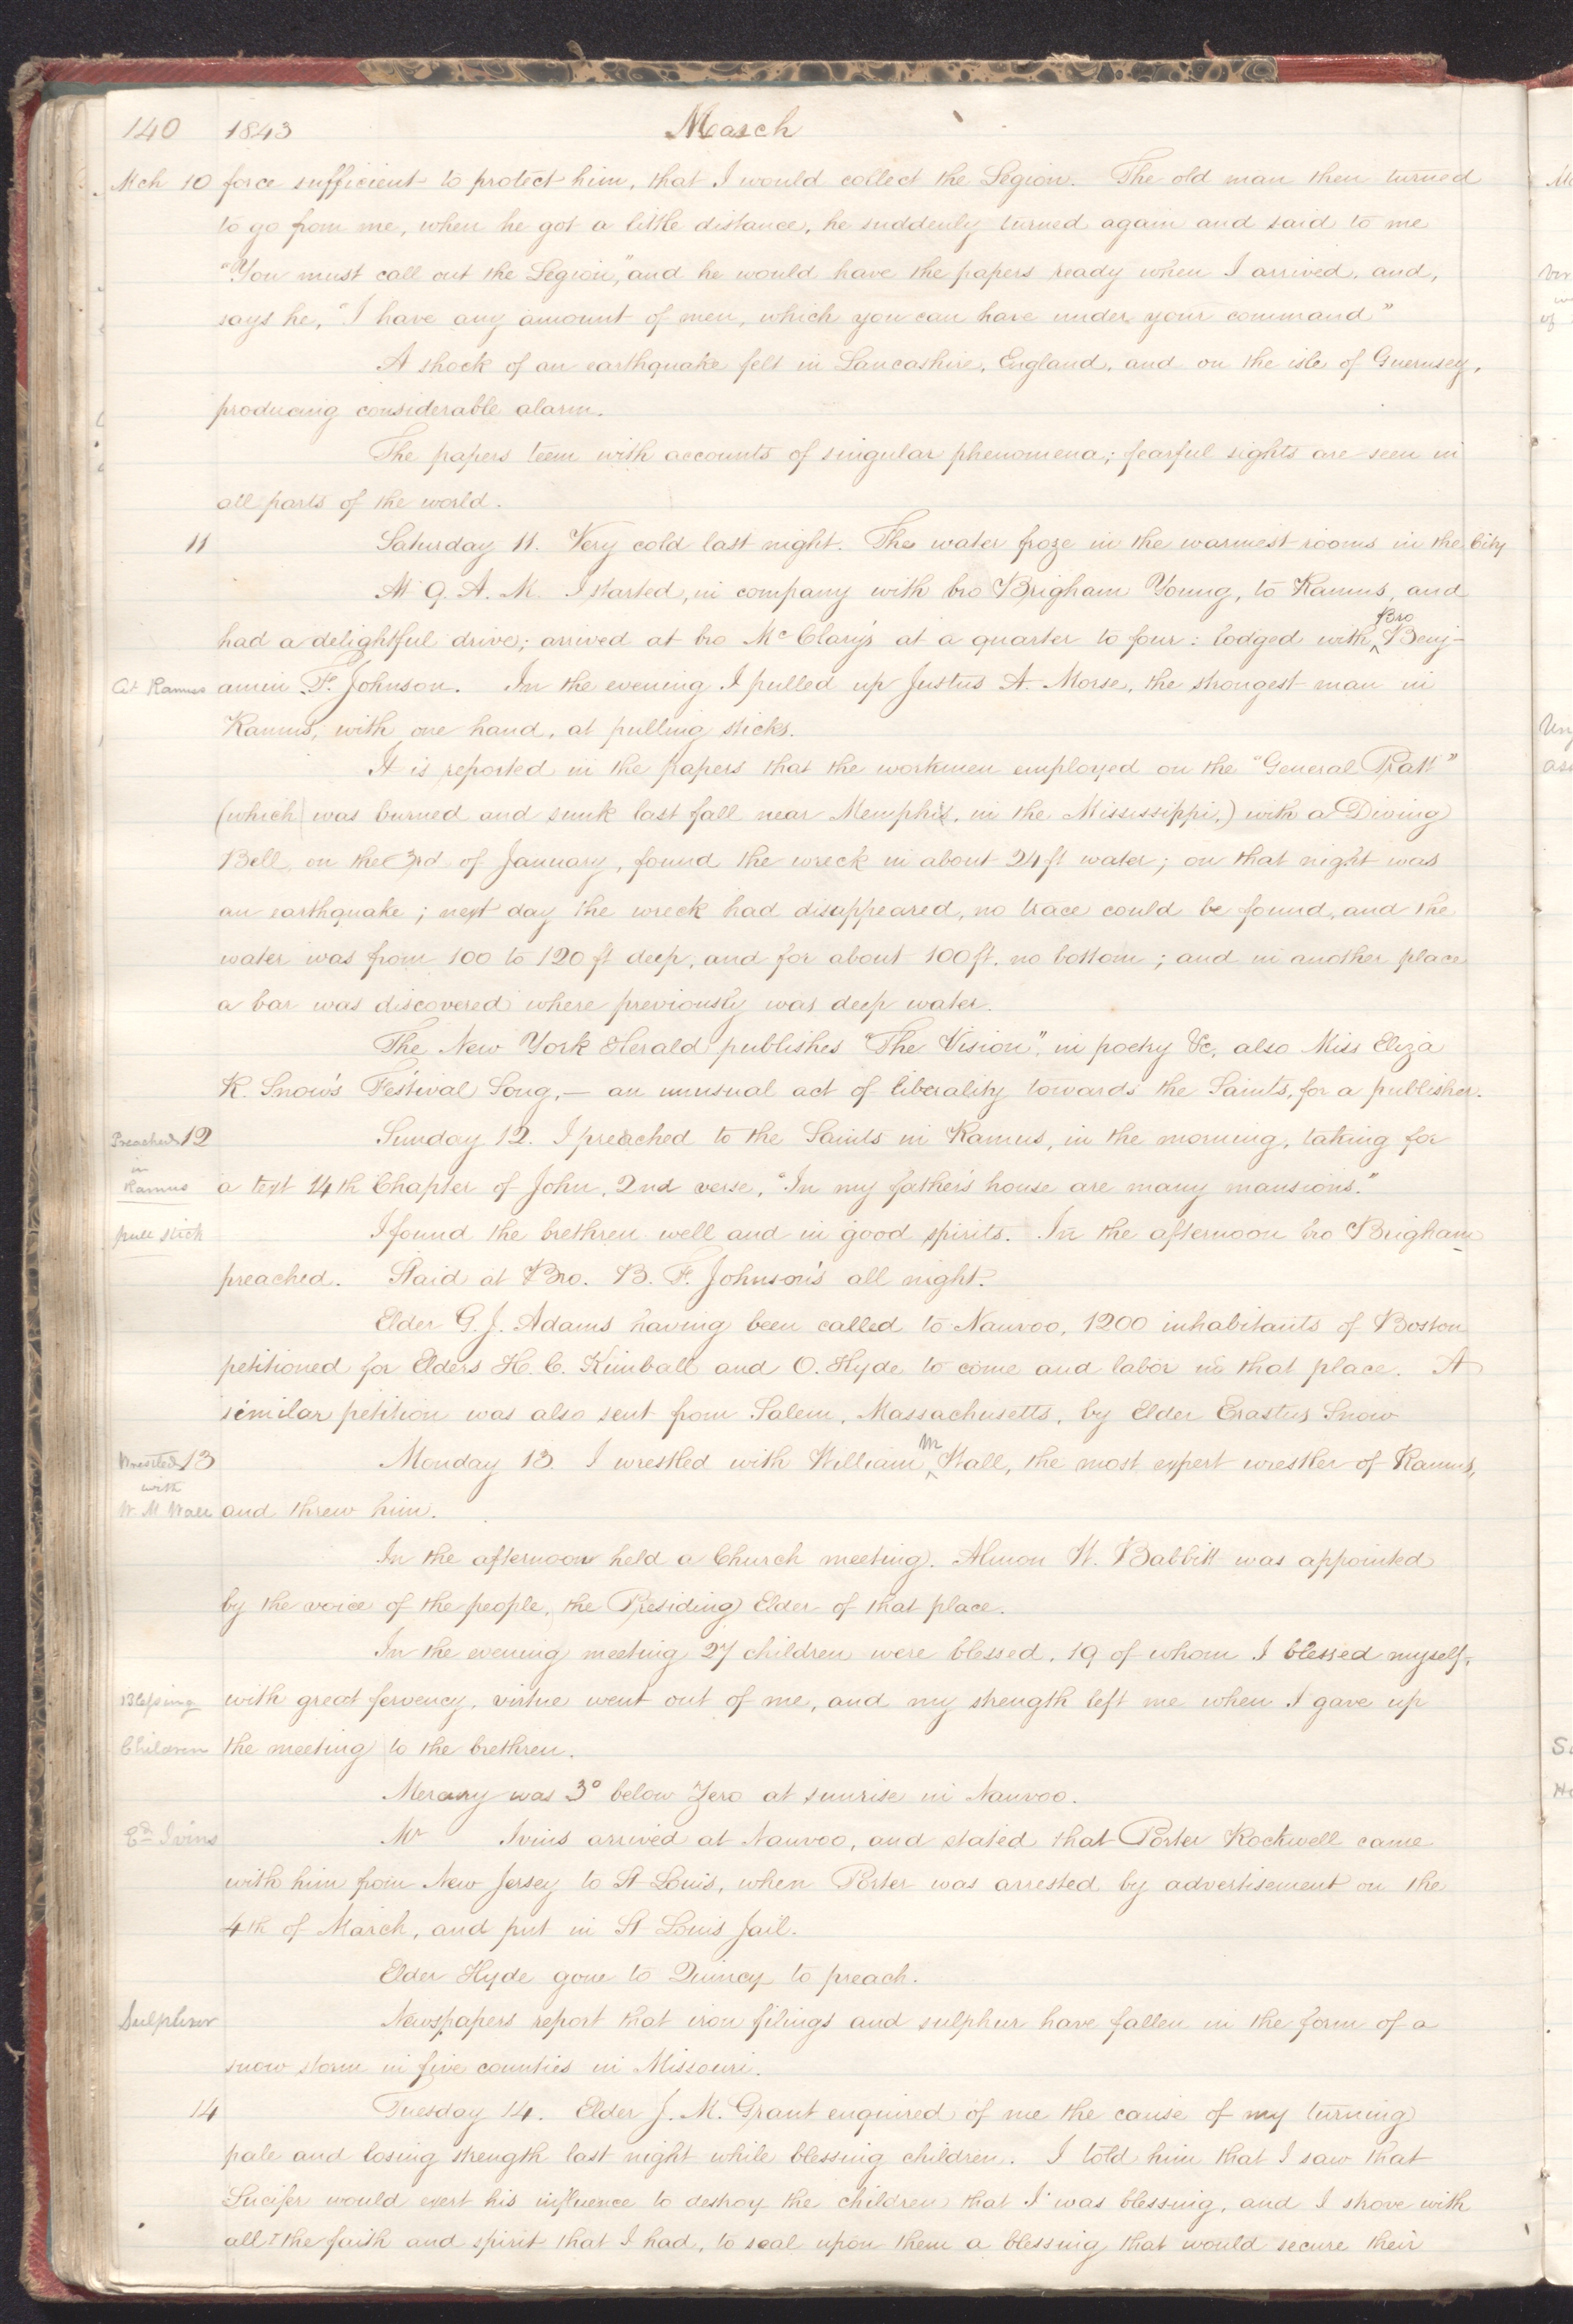 140 1843 March
Mch 10 force sufficient to protect him, that I would collect the Legion. The old man then turned
to go from me, when he got a little distance, he suddenly turned again and said to me
"You must call out the Legion," and he would have the papers ready when I arrived, and,
says he, "I have any amount of men, which you can have under your command"
A shock of an earthquake felt in Lancashire, England, and on the isle of Guernsey,
producing considerable alarm.
The papers teem with accounts of singular phenomena; fearful sights are seen in
all parts of the world.
11 Saturday 11. Very cold last night. The water froze in the warmest rooms in the City
At 9. A. M. I started, in company with bro Brigham Young, to Ramus, and
had a delightful drive; arrived at bro McClary's at a quarter to four: lodged with Bro Benj-
At Ramus amin F. Johnson. In the evening I pulled up Justus A. Morse, the strongest man in
Ramus, with one hand, at pulling sticks.
It is reported in the papers that the workmen employed on the "General Pratt"
(which was burned and sunk last fall near Memphis, in the Mississippi,) with a Diving
Bell, on the 3rd of January, found the wreck in about 24 ft water; on that night was
an earthquake; next day the wreck had disappeared, no trace could be found, and the
water was from 100 to 120 ft deep, and for about 100 ft. no bottom; and in another place
a bar was discovered where previously was deep water.
The New York Herald publishes "The Vision", in poetry &c, also Miss Eliza
R. Snow's Festival Song,— an unusual act of liberality towards the Saints, for a publisher.
Preached 12 Sunday 12. I preached to the Saints in Ramus, in the morning, taking for
in
Ramus a text 14th Chapter of John, 2nd verse, "In my father's house are many mansions."
pull stick I found the brethren well and in good spirits. In the afternoon bro Brigham
preached. Staid at Bro. B. F. Johnson's all night.
Elder G. J. Adams having been called to Nauvoo, 1200 inhabitants of Boston
petitioned for Elders H. C. Kimball and O. Hyde to come and labor in that place. A
similar petition was also sent from Salem, Massachusetts, by Elder Erastus Snow
Wrestled 13 Monday 13. I wrestled with William M Wall, the most expert wrestler of Ramus,
with
W. M Wall and threw him.
In the afternoon held a Church meeting. Almon W. Babbitt was appointed
by the voice of the people, the Presiding Elder of that place.
In the evening meeting 27 children were blessed, 19 of whom I blessed myself,
Blessing with great fervency, virtue went out of me, and my strength left me when I gave up
Children the meeting to the brethren.
Mercury was 3° below Zero at sunrise in Nauvoo.
Ed Ivins Mr Ivins arrived at Nauvoo, and stated that Porter Rockwell came
with him from New Jersey to St Louis, when Porter was arrested by advertisement on the
4th of March, and put in St Louis Jail.
Elder Hyde gone to Quincy to preach.
Sulphur Newspapers report that iron filings and sulphur have fallen in the form of a
snow storm in five counties in Missouri.
14 Tuesday 14. Elder J. M. Grant enquired of me the cause of my turning
pale and losing strength last night while blessing children. I told him that I saw that
Lucifer would exert his influence to destroy the children that I was blessing, and I strove with
all the faith and spirit that I had, to seal upon them a blessing that would secure their